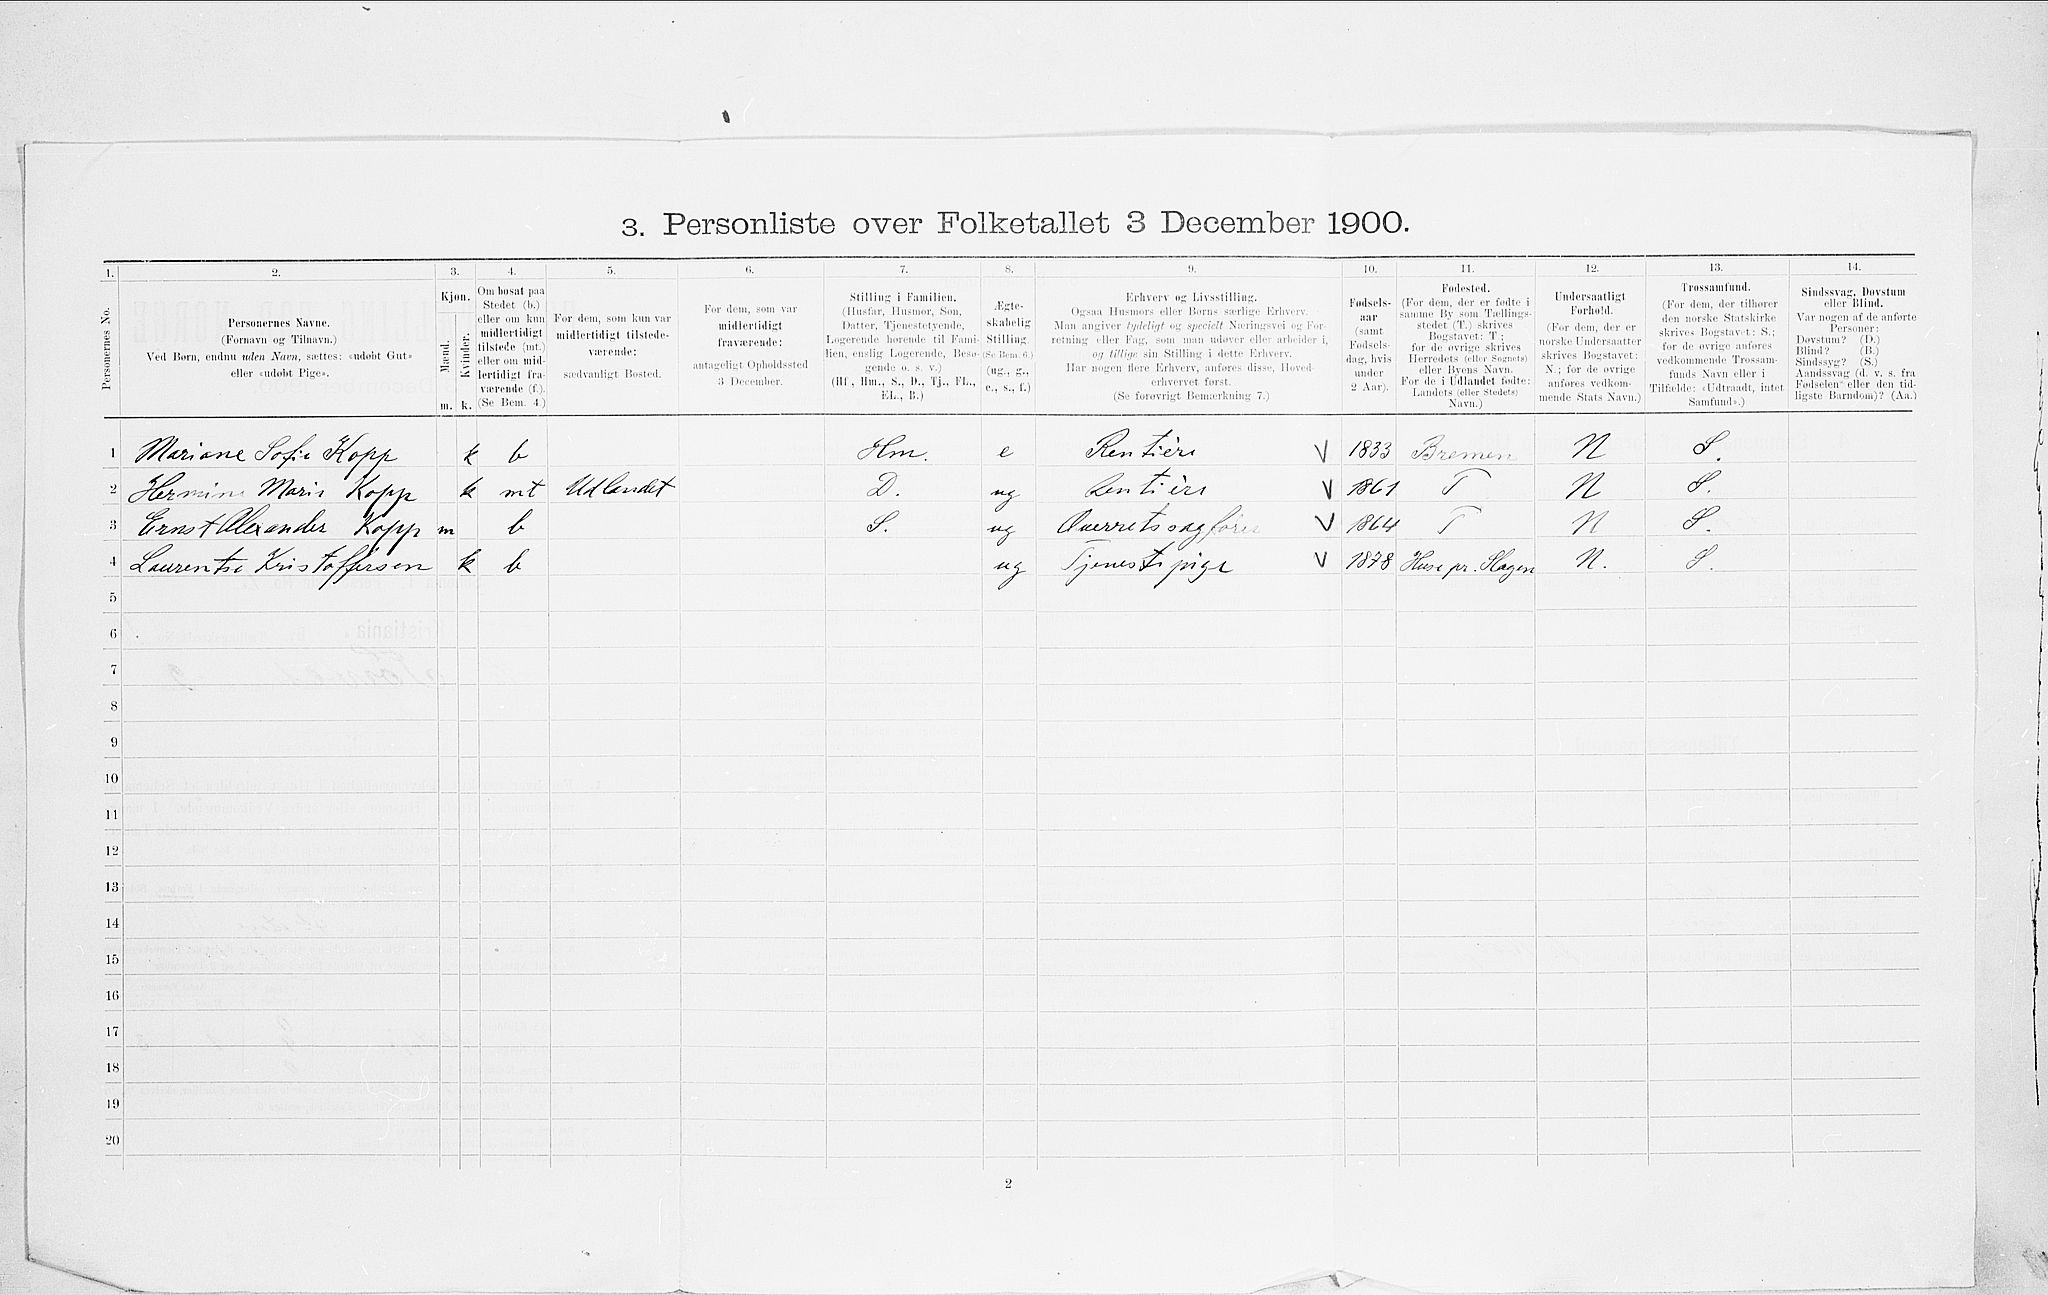 3. Personliste over Folketallet 3 December 1900.
1. 2. 3. 4. 5. 6. 7. 8. 9. 10. 11. 12. 13. 14.
Personernes No.
Personernes Navne.
(Fornavn og Tilnavn.)
Ved Børn, endnu uden Navn, sættes: «udøbt Gut»
eller «udøbt Pige».
Kjøn.
Mænd.
Kvinder.
m. k.
Om bosat paa
Stedet (b.)
eller om kun
midlertidigt
tilstede (mt.)
eller om mid-
lertidigt fra-
værende (f.).
(Se Bem. 4.)
For dem, som kun var
midlertidigt tilstede-
værende:
sædvanligt Bosted.
For dem, som var
midlertidigt
fraværende:
antageligt Opholdssted
3 December.
Stilling i Familien.
(Husfar, Husmor, Søn,
Datter, Tjenestetyende,
Logerende hørende til Fami-
lien, enslig Logerende, Besø-
gende o. s. v.)
(Hf., Hm., S., D., Tj., FL.,
EL., B.)
Ægte-
skabelig
Stilling.
(Se Bem. 6.)
(ug., g.,
e., s., f.)
Erhverv og Livsstilling.
Ogsaa Husmors eller Børns særlige Erhverv.
Man angiver tydeligt og specielt Næringsvei og For-
retning eller Fag, som man udøver eller arbeider i,
og tillige sin Stilling i dette Erhverv.
Har nogen flere Erhverv, anføres disse, Hoved-
erhvervet først.
(Se forøvrigt Bemærkning 7.)
Fødsels-
aar
(samt
Fødsels-
dag, hvis
under
2 Aar).
Fødested.
(For dem, der er fødte i
samme By som Tællings-
stedet (T.) skrives
Bogstavet: T;
for de øvrige skrives
Herredets (eller Sognets)
eller Byens Navn.
For de i Udlandet fødte:
Landets (eller Stedets)
Navn.)
Undersaatligt
Forhold.
(For dem, der er
norske Undersaatter
skrives Bogstavet:
N.; for de øvrige
anføres vedkom-
mende Stats Navn.)
Trossamfund.
(For dem, der tilhører
den norske Statskirke
skrives Bogstavet: S.;
for de øvrige anføres
vedkommende Trossam-
funds Navn eller i
Tilfælde: «Udtraadt, intet
Samfund».)
Sindssvag, Døvstum
eller Blind.
Var nogen af de anførte
Personer:
Døvstum? (D.)
Blind? (B.)
Sindssyg? (S.)
Aandssvag (d. v. s. fra
Fødselen eller den tid-
ligste Barndom)? (Aa.)
1 Mariane Sofie Kopp k b Hm. e Rentière V 1833 Bremen N S.
2 Hermine Marie Kopp k mt Udlandet D. ug Rentière V 1861 T N S.
3 Ernst Alexander Kopp m b S. ug Overretssagfører V 1864 T N S.
4 Laurentse Kristoffersen k b ug Tjenestepige V 1878 Huse pr. Slagen N. S.
5
6
7
8
9
10
11
12
13
14
15
16
17
18
19
20
2